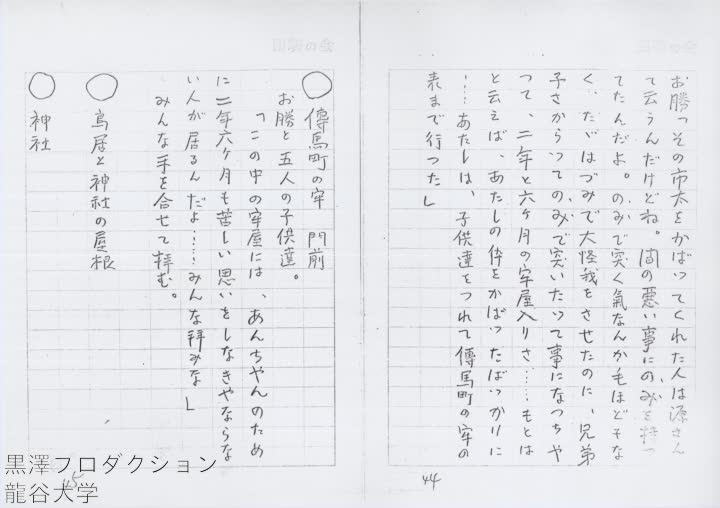 お勝「その市太をかばつてくれた人は源さん
て云うんだけどね。間の悪い事にのみを持つ
てたんだよ。のみで突く氣なんか毛ほどもな
く、たゞはづみで大怪我をさせたのに、兄弟
子さからつてのみで突いたつて事になつちや
つて、二年と六ヶ月の牢屋入りさ……もとは
と云えば、あたしの伜をかばつたばつかりに
……あたしは、子供達をつれて傳馬町の牢の
表まで行つた」
44
○ 傳馬町の牢 門前
お勝と五人の子供達。
「この中の牢屋には、あんちやんのため
に二年六ヶ月も苦しい思いをしなきやならな
い人が居るんだよ……みんな拜みな」
みんな手を合せて拜む。
○ 鳥居と神社の屋根
○ 神社
45
黒澤プロダクション
龍谷大学